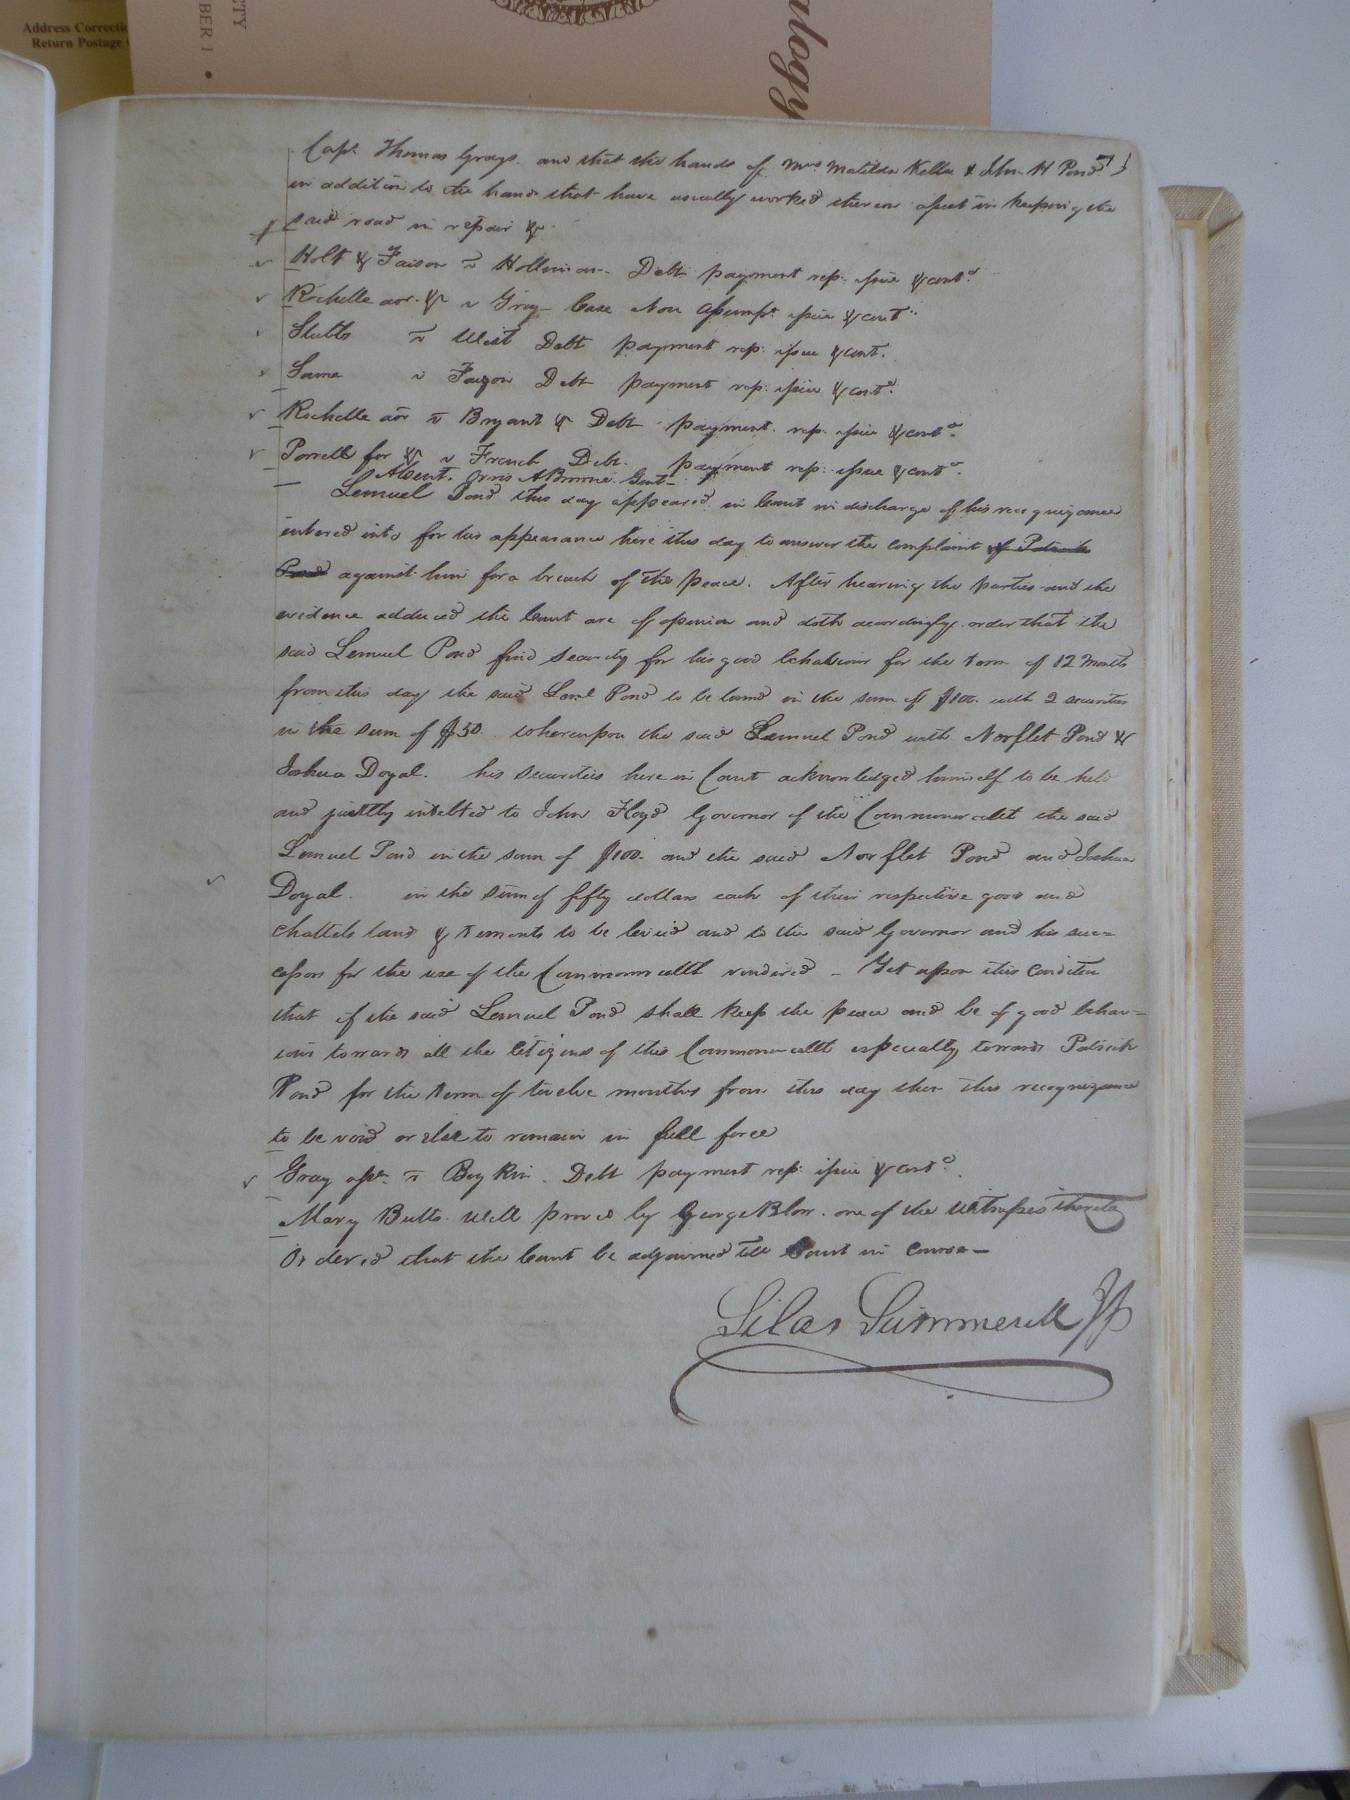 Address Correctio
Return Postage
ETY
BER 1 •
alogy
Capt. Thomas Grays. and that the hands of Mrs Matilda Kello & John H Pond
in addition to the hands that have usually worked thereon assist in keeping the
said road in repair &c
Holt & Faison v Holleman. Debt payment rep: issue & contd
Rochelle aor. &c v Gray Case Non assumpt. issue & cont
Stubbs v West Debt payment rep: issue & cont.
Same v Faison Debt payment rep: issue & contd.
Rochelle aor v Bryant & Debt payment. rep: issue & contd.
Porrell for &c v French Debt. payment rep: issue & contd.
Absent. Orris A Browne Gent
Lemuel Pond this day appeared in Court in discharge of his recognizance
entered into for his appearance here this day to answer the complaint of Patrick
Pond against him for a breach of the peace. After hearing the parties and the
evidence adduced the Court are of opinion and doth accordingly order that the
said Lemuel Pond find security for his good behaviour for the term of 12 Months
from this day the said Leml Pond to be bound in the sum of $100. with 2 securities
in the sum of $50 whereupon the said Lemuel Pond with Norflet Pond &
Joshua Doyal. his securities here in Court acknowledged himself to be held
and justly indebted to John Floyd Governor of the Commonwealth the said
Lemuel Pond in the sum of $100. and the said Norflet Pond and Joshua
Doyal. in the sum of fifty dollars each of their respective good and
Chattels land & tements to be levied and to the said Governor and his suc=
cessors for the use of the Commonwealth rendered - Yet upon this condition
that if the said Lemuel Pond shall keep the peace and be of good behav=
iour towards all the Citizens of this Commonwealth especially towards Patrick
Pond for the term of twelve months from this day then this recognizance
to be void or else to remain in full force
Gray v Boykin. Debt payment rep: issue & contd.
Mary Butts. Will proved by George Blow. one of the witnesses thereto
Ordered that the Court be adjourned till Court in Course—
Silas Summerell JP